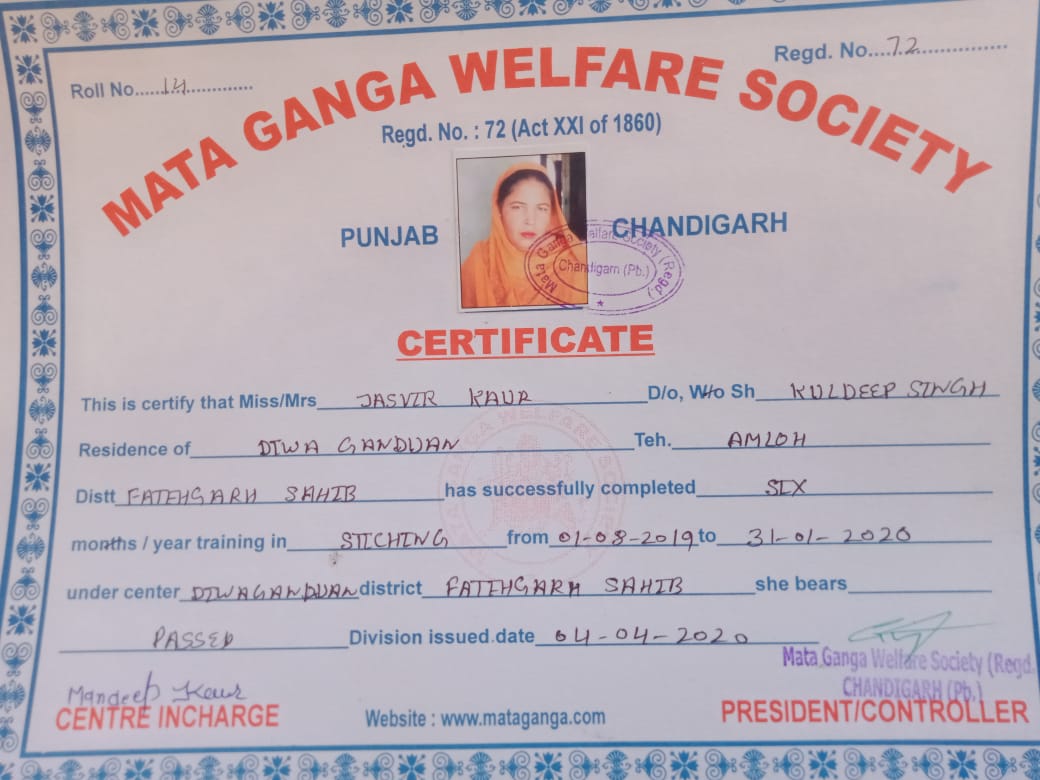 Roll No....14.............. Regd. No....72................
MATA GANGA WELFARE SOCIETY
Regd. No. : 72 (Act XXI of 1860)
PUNJAB CHANDIGARH
Mata Ganga Welfare Society (Regd.)
Chandigarh (Pb.)
CERTIFICATE
This is certify that Miss/Mrs JASVIR KAUR D/o, W/o Sh KULDEEP SINGH
Residence of DIWA GANDUAN Teh. AMLOH
Distt FATEHGARH SAHIB has successfully completed SIX
months / year training in STICHING from 01-08-2019 to 31-01-2020
under center DIWAGANDUAN district FATEHGARH SAHIB she bears
PASSED Division issued date 04-04-2020
Mata Ganga Welfare Society (Regd.
CHANDIGARH (Pb.)
Mandeep Kaur
CENTRE INCHARGE Website : www.mataganga.com PRESIDENT/CONTROLLER
MATA GANGA WELFARE SOCIETY